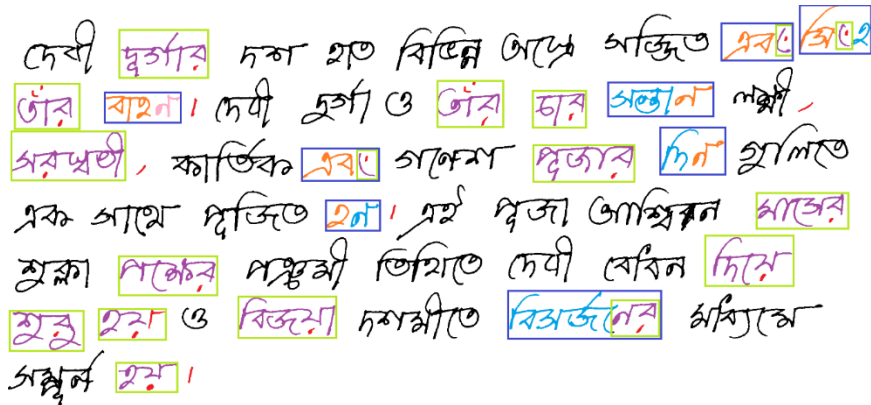 দেবী দুর্গার দশ হাত বিভিন্ন অস্ত্রে সজ্জিত এবং সিংহ
তাঁর বাহন। দেবী দুর্গা ও তাঁর চার সন্তান লক্ষ্মী,
সরস্বতী, কার্তিক এবং গনেশ পূজার দিন গুলিতে
এক সাথে পূজিত হন। এই পূজা আশ্বিন মাসের
শুক্লা পক্ষের পঞ্চমী তিথিতে দেবী বোধন দিয়ে
শুরু হয় ও বিজয়া দশমীতে বিসর্জনের মাধ্যমে
সম্পূর্ন হয়।